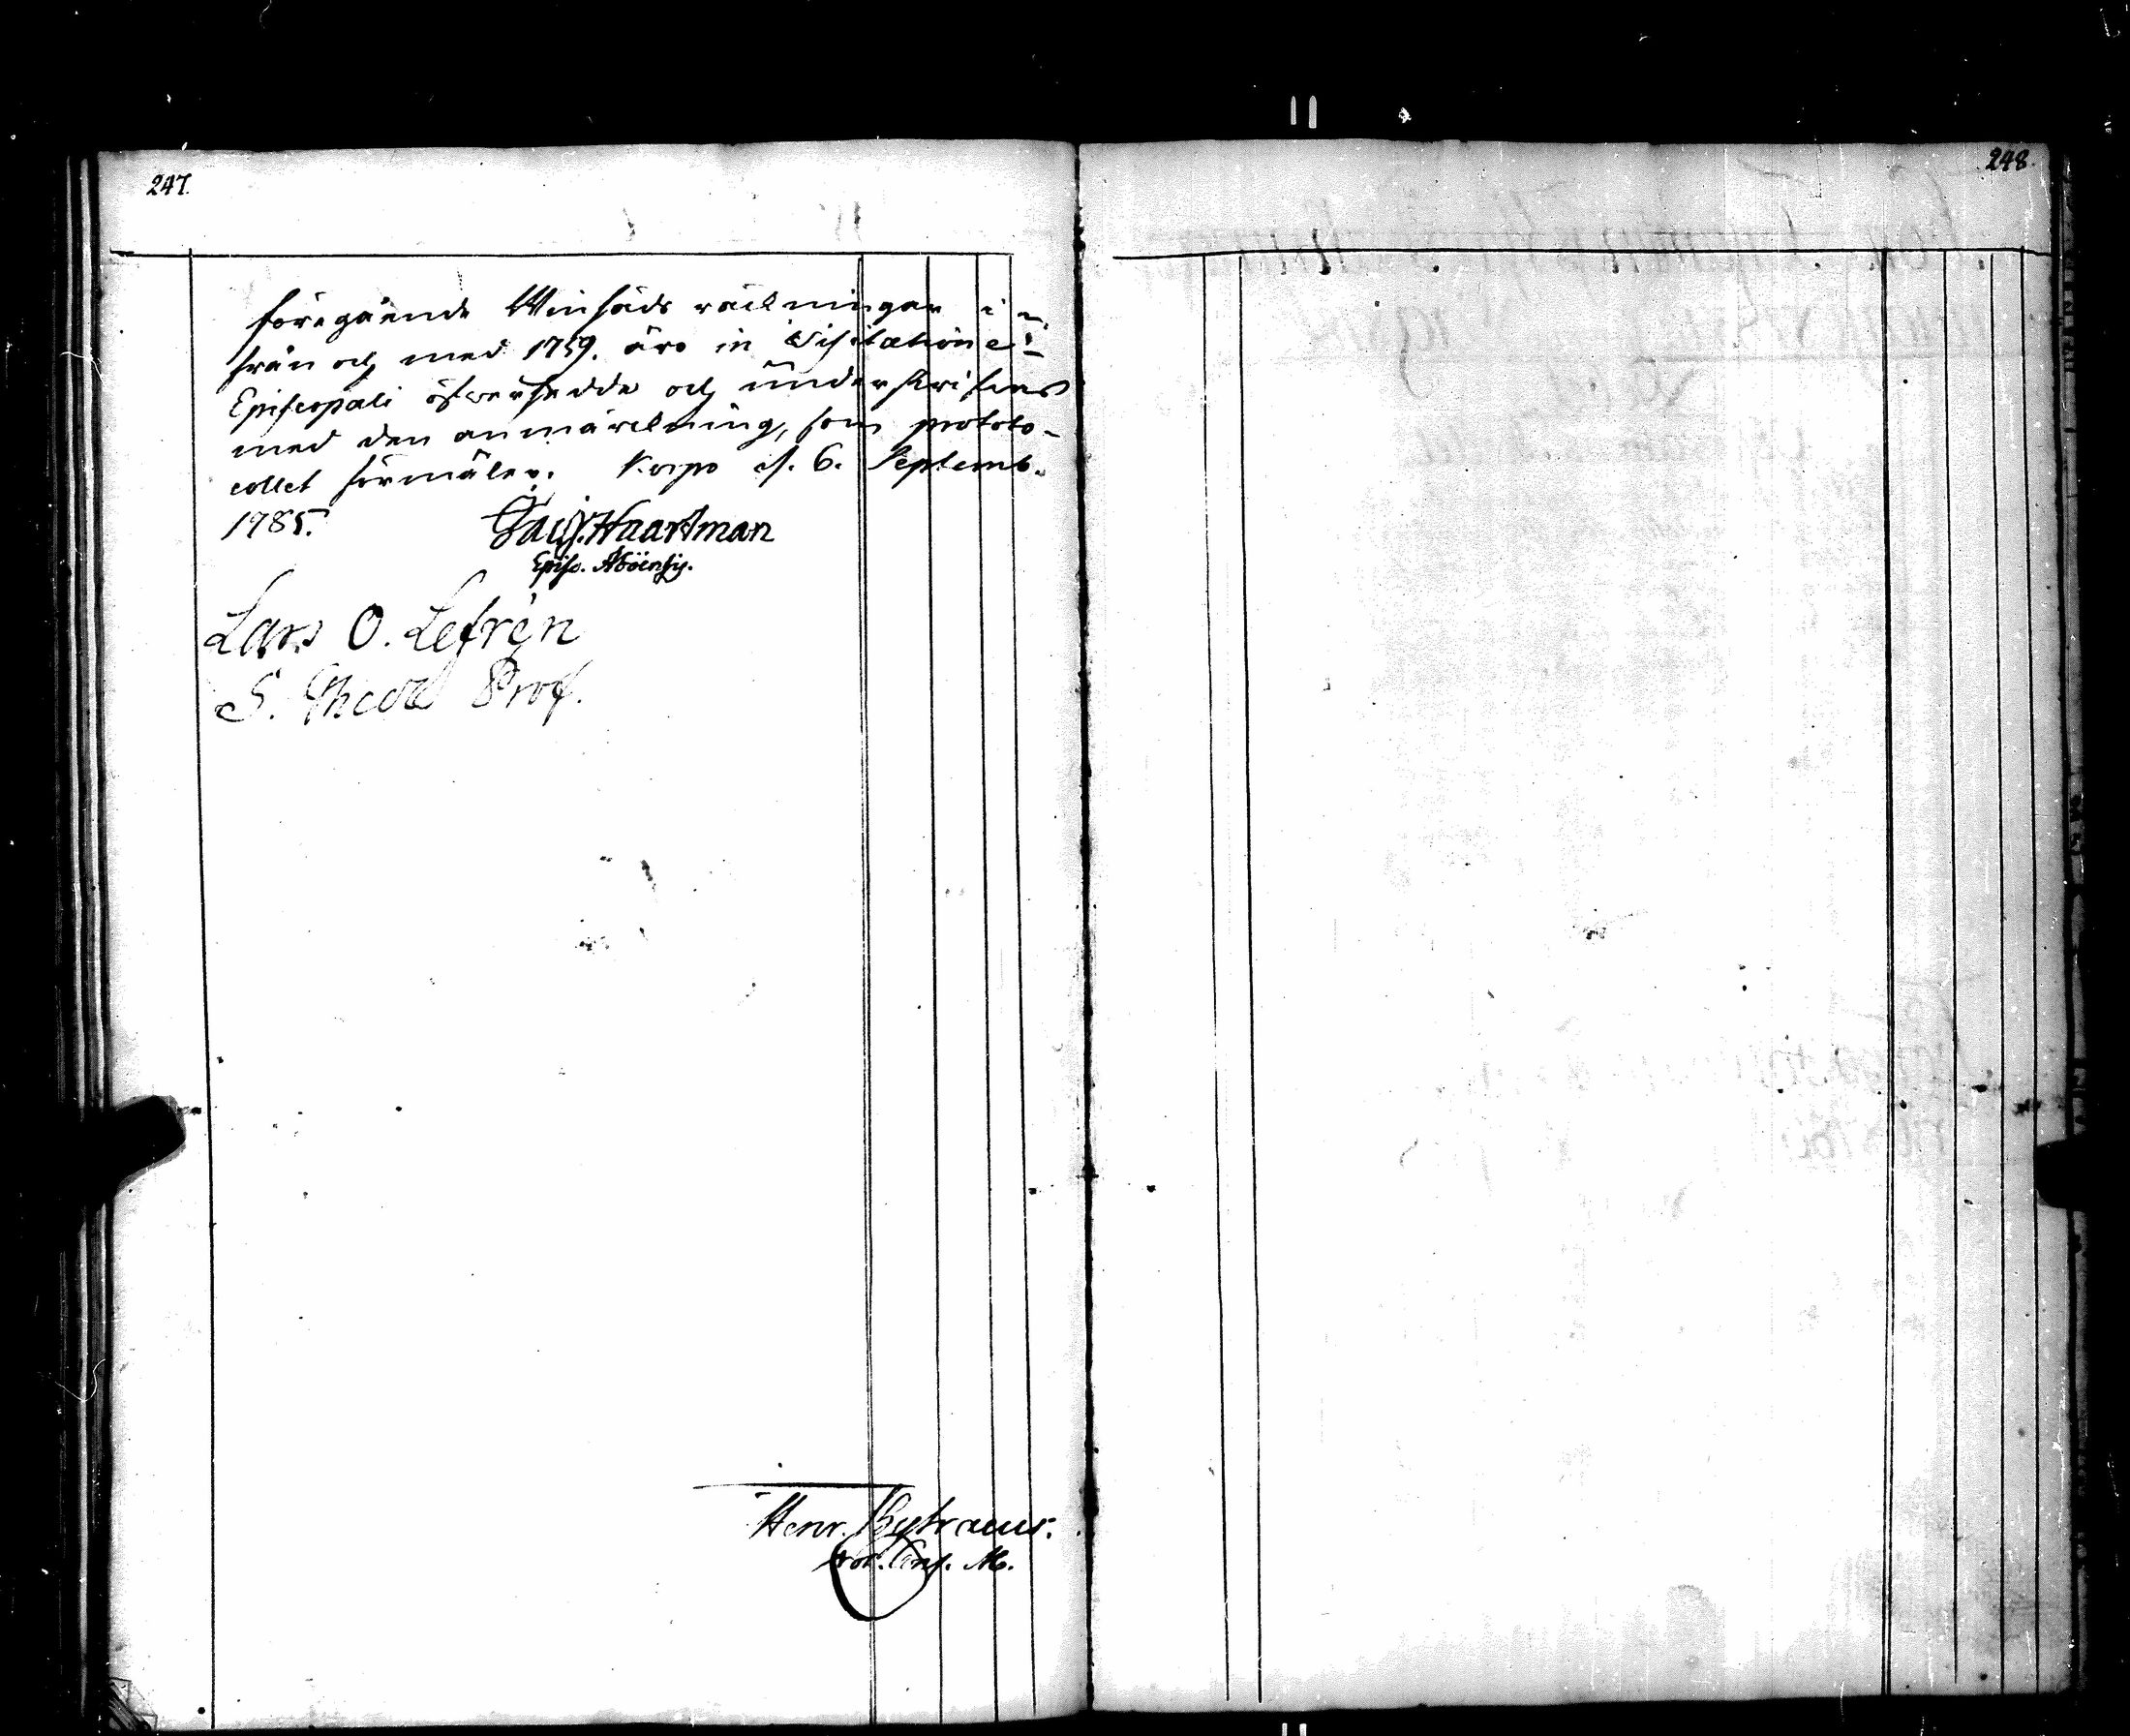 247.
föregående Winsäds räckningar i n
från och med 1759. äro in Visitatione
Episcopali öfwersedde och underskrifne
med den anmärckning, som prototo-
collet förmäler. Korpo d. 6. Septemb.
1785.
Jac. Haartman
Episc. Aboensis.
Lars O. Lefrén
S. Prof.
Henr.
Not. Cons.
248.